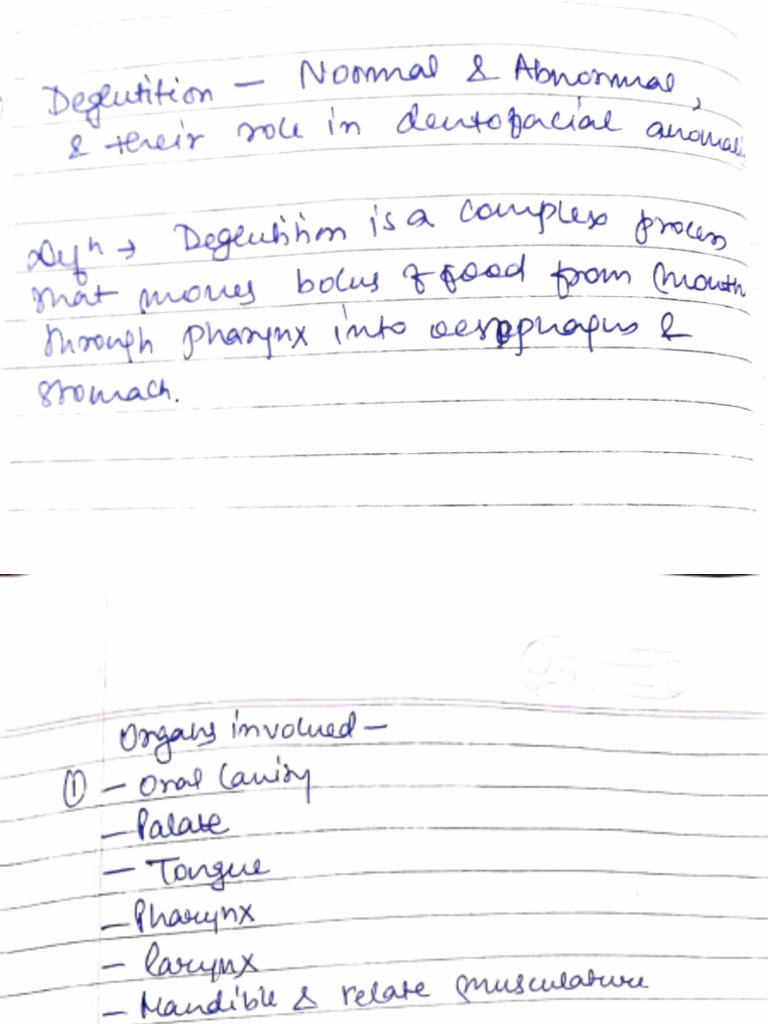 Deglutition - Normal & Abnormal,
& their role in dentofacial anomal
Defⁿ → Deglutition is a complex process
that moves bolus of food from mouth
through pharynx into oesophagus &
stomach.
Organs involved -
① - Oral Cavity
- Palate
- Tongue
- Pharynx
- larynx
- Mandible & relate musculature